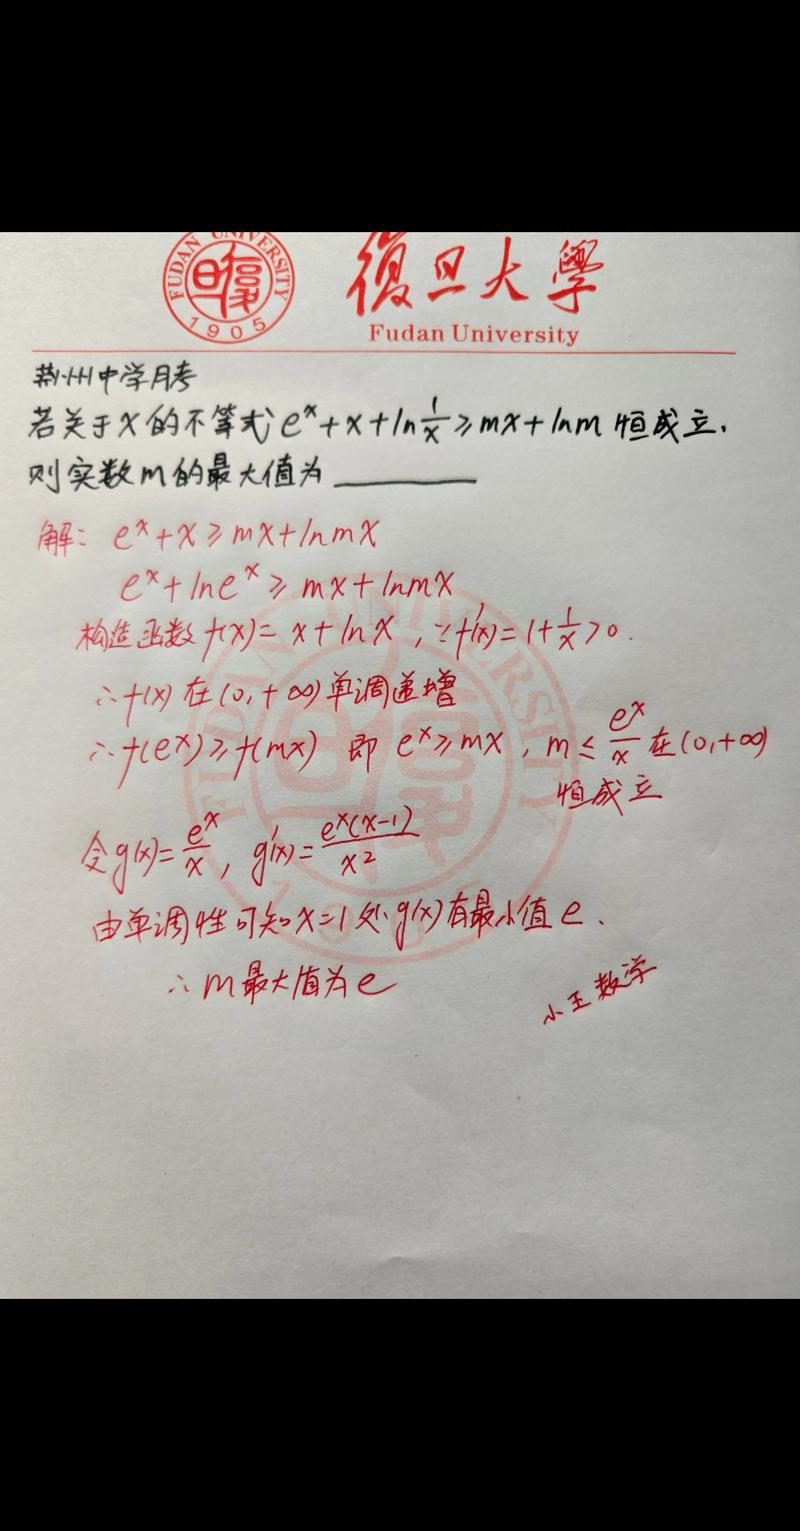 FUDAN UNIVERSITY
1905
復旦大學
Fudan University
荆州中学月考
若关于x的不等式eˣ+x+ln 1/x ≥ mx+lnm 恒成立,
则实数m的最大值为
解: eˣ+x≥mx+lnmx
eˣ+lneˣ≥mx+lnmx
构造函数f(x)=x+lnx, ∵f'(x)=1+1/x>0.
∴f(x)在(0,+∞)单调递增
∴f(eˣ)≥f(mx) 即 eˣ≥mx, m≤eˣ/x 在(0,+∞)
恒成立
令g(x)=eˣ/x, g'(x)=eˣ(x-1)/x²
由单调性可知x=1处g(x)有最小值e.
∴m最大值为e
小王数学